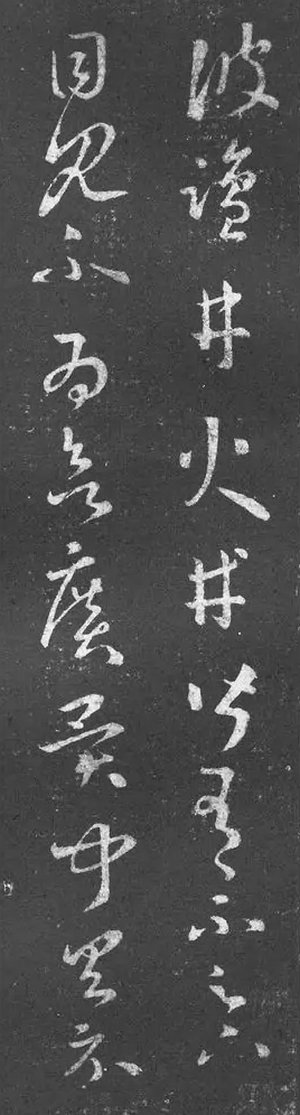 彼鹽井火井皆有不足下
目見不為欲廣異聞具示